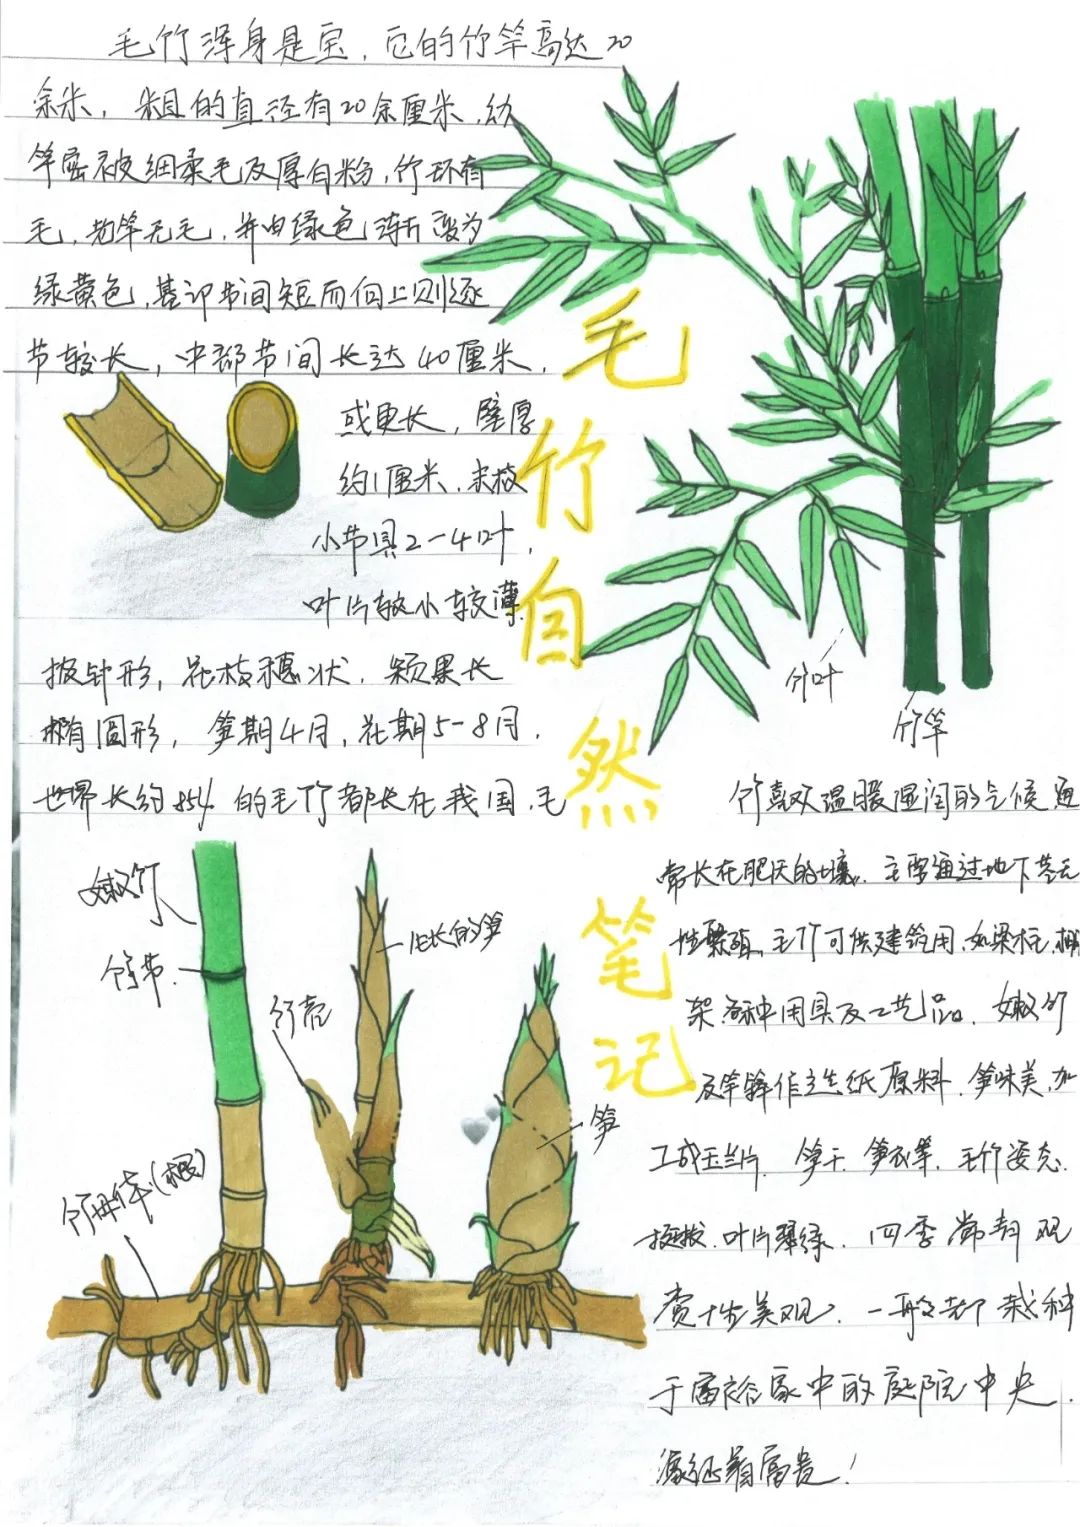 毛竹浑身是宝,它的竹竿高达20
余米,粗的直径有20余厘米,幼
竿密被细柔毛及厚白粉,竹环有
毛,老竿无毛,并由绿色渐变为
绿黄色,基部节间短而向上则逐
节较长,中部节间长达40厘米,
或更长,壁厚
约1厘米,末枝
小节具2-4叶,
叶片较小较薄
披针形,花枝穗状,颖果长
椭圆形,笋期4月,花期5-8月.
世界长约85%的毛竹都长在我国,毛
毛竹自然笔记
竹叶
竹竿
竹喜欢温暖湿润的气候通
常长在肥沃的土壤,主要通过地下茎无
性繁殖,毛竹可供建筑用,如梁柱,棚
架,各种用具及工艺品,嫩竹
及竿箨作造纸原料,笋味美,加
工成玉兰片,笋干,笋衣等,毛竹姿态
挺拔,叶片翠绿,四季常青观
赏性美观,一般都栽种
于富裕家中的庭院中央,
象征着富贵!
嫩竹
竹节
生长的笋
竹壳
笋
竹母体(根)